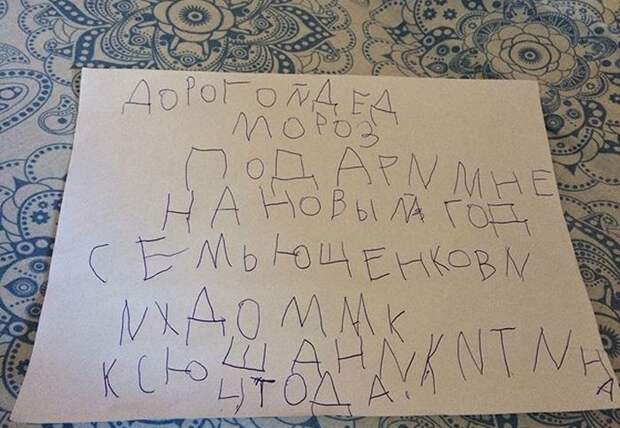 ДОРОГОЙ ДЕД
МОРОЗ
ПОДАРИ МНЕ
НА НОВЫЙ ГОД
СЕМЬЮ ЩЕНКОВ И
ИХ ДОММК
КСЮША НИКИТИНА
4 ГОДА.